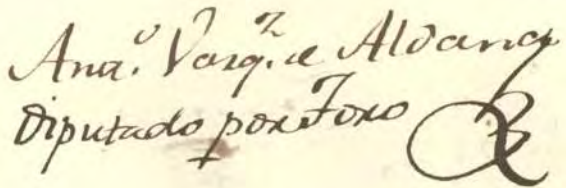 Anu.º Vazq.z de Aldana
Diputado por Toro